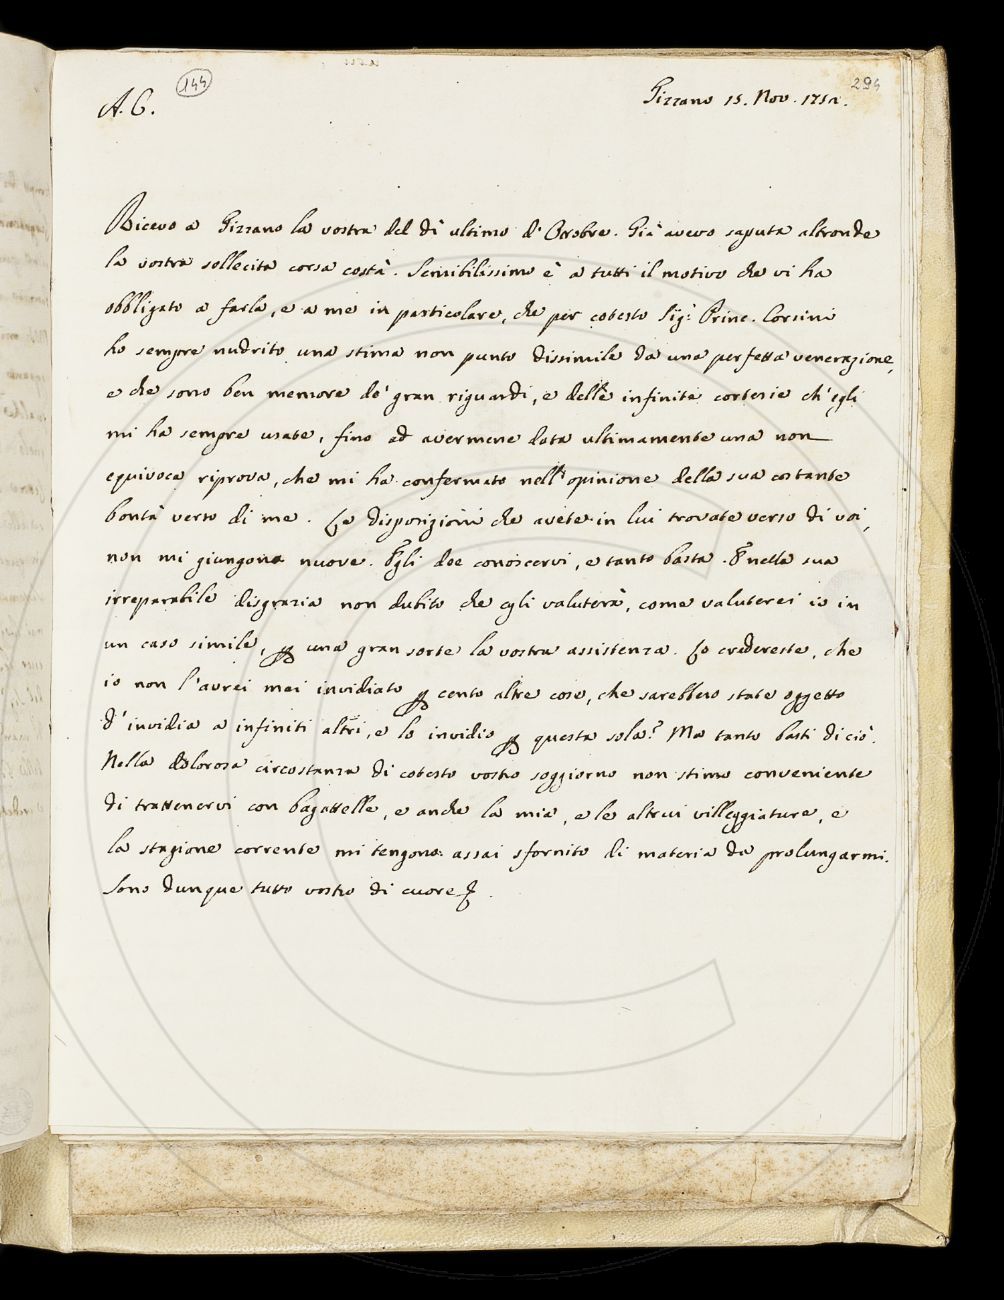 144
294
A. C.
Gizzano 15. Nov. 1752.
Ricevo a Gizzano la vostra del dì ultimo d'Ottobre. Già avevo saputa altronde
la vostra sollecita corsa costà. Sensibilissimo è a tutti il motivo che vi ha
obbligato a farla, e a me in particolare, che per cotesto Sig: Princ. Corsini
ho sempre nudrito una stima non punto dissimile da una perfetta venerazione,
e che sono ben memore de' gran riguardi, e delle infinite cortesie ch'egli
mi ha sempre usate, fino ad avermene data ultimamente una non
equivoca riprova, che mi ha confermato nell'opinione della sua costante
bontà verso di me. Le disposizioni che avete in lui trovate verso di voi,
non mi giungono nuove. Egli dee conoscervi, e tanto basta. E nella sua
irreparabile disgrazia non dubito che egli valuterà, come valuterei io in
un caso simile, p una gran sorte la vostra assistenza. Lo credereste, che
io non l'avrei mai invidiato p cento altre cose, che sarebbero state oggetto
d'invidia a infiniti altri, e lo invidio p questa sola? Ma tanto basti di ciò.
Nella dolorosa circostanza di cotesto vostro soggiorno non stimo conveniente
di trattenervi con bagattelle, e anche la mia, e le altrui villeggiature, e
la stagione corrente mi tengono assai sfornito di materia da prolungarmi.
Sono dunque tutto vostro di cuore